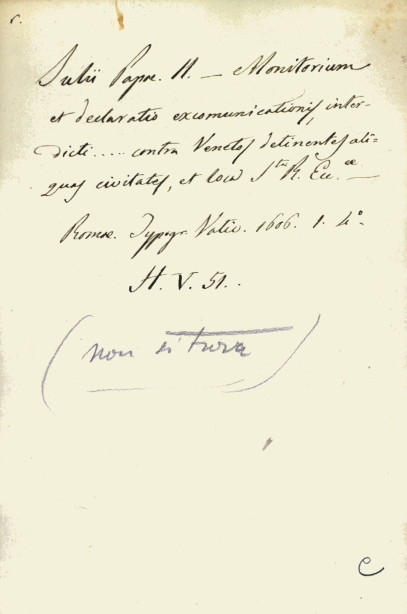 s.
Julii Papae. II. — Monitorium
et declaratio excomunicationis, inter-
dicti..... contra Venetos detinentes ali-
quas civitates, et loca S.tae R. Ecc.ae —
Romae. Typogr. Vatic. 1606. 1. 4°.
H. V. 51..
(non si trova)
C